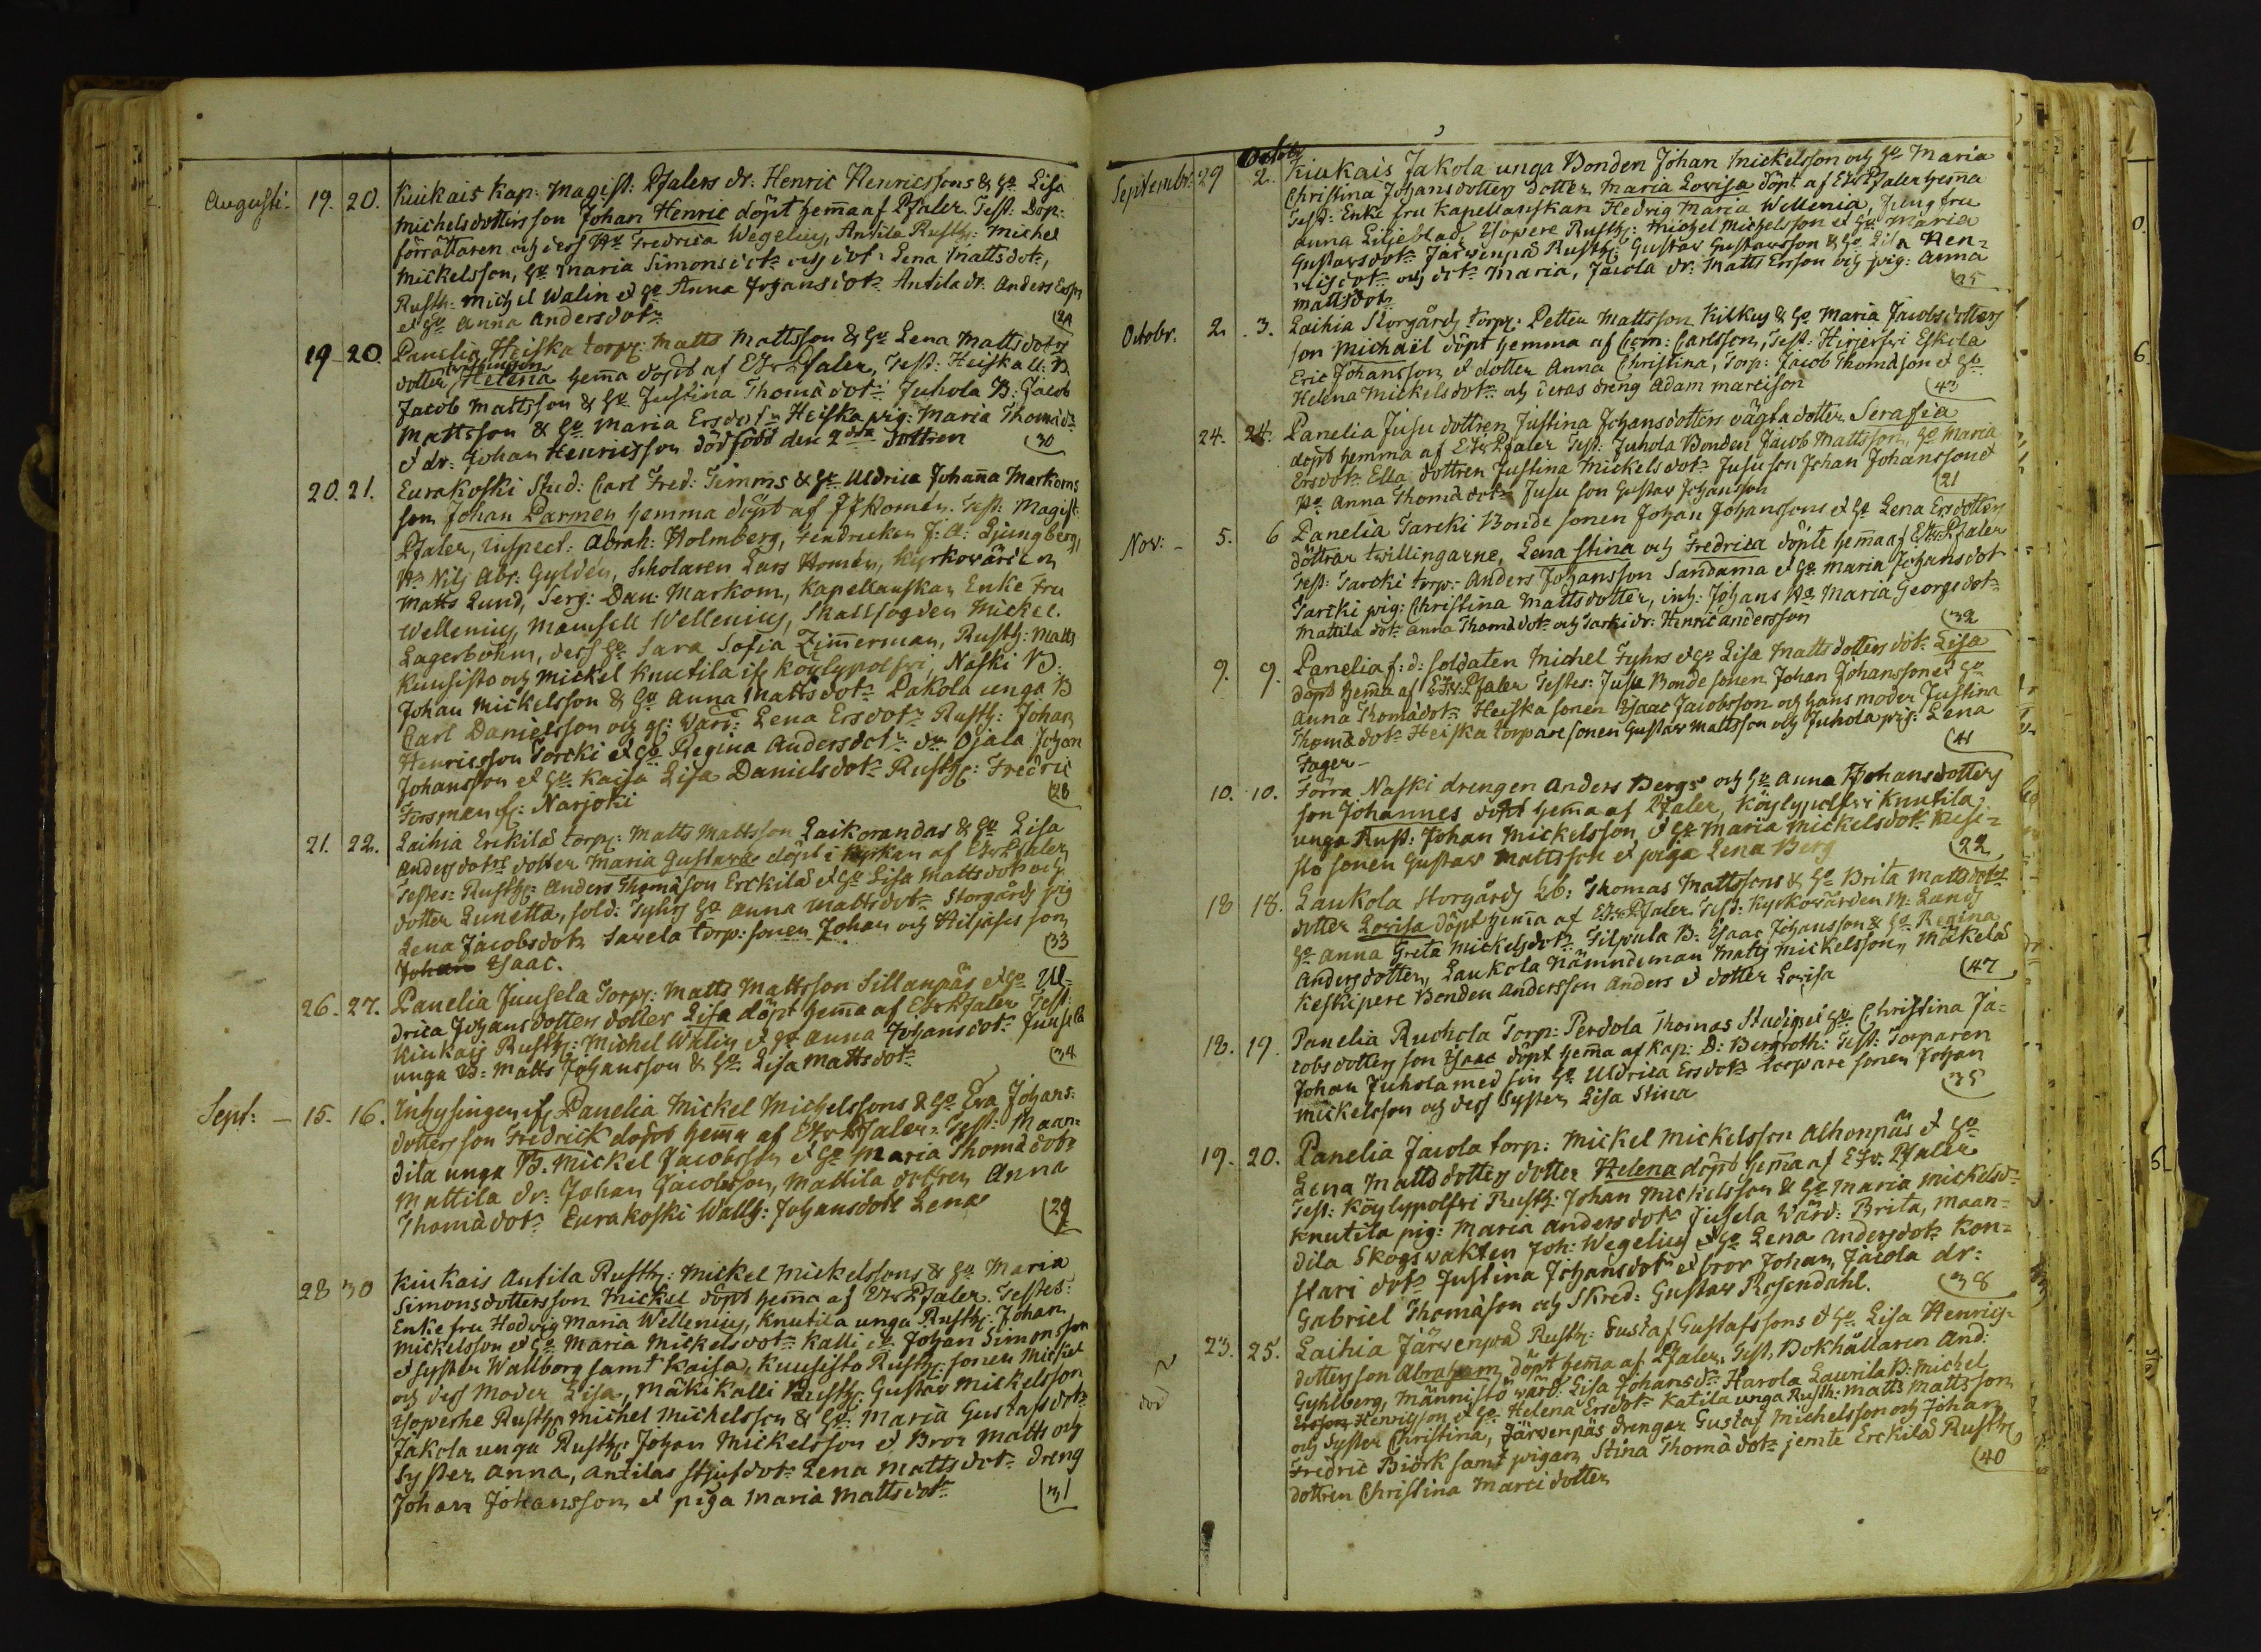 Augusti. 19. 20. Kiukais Kap: Magist: Pfalers dr: Henric Henricssons & ho Lisa
Michelsdotters son Johan Henric döpt hem̄a af Pfaler. Test: Döp:
förrättaren och dess Ho Fredrica Wegelius, Antila Rusth: Michel
Mickelsson, ho Maria Simonsdotr och dot: Lena Mattsdotr,
Rusth: Michel Walin et ho Anna Johansdotr Antila dr: Anders Ersson
et ho Anna Andersdotr (24
19 20. Panelia Heiska torp: Matts Mattsson & ho Lena Mattsdotrs
twillingen
dotter Helena hem̄a döpt af Pfaler, Test: Heiska B:
Jacob Mattsson & ho Justina Thomædotr Juhola B: Jacob
Mattsson & ho Maria Ersdotr Heiska pig: Maria Thomædr
et dr: Johan Henricsson dödfödd den 2dra dottren (30
20. 21. Eurakoski Stud: Carl Fred: Timms & ho Uldrica Johan̄a Markoms
son Johan Parmen hemma döpt af Homén. Test: Magist:
Pfaler, Inspect: Abrah: Holmberg, Fendricken J: A: Ljungberg,
Hr Nils Abr: Gyldén, Scholaren Lars Homén, Kyrkowärden
Matts Lund, Serg: Dan: Markom, Kapellanskan Enke Fru
Wellenius, Mamsell Wellenius, Skallfogden Mickel
Lagerbohm, dess ho Sara Sofia Zim̄erman, Rusth: Matts
Kuusisto och Mickel Knutila if: Köylypolfvi, Naski B:
Johan Mickelsson & ho Anna Mattsdotr Pakola unga B
Carl Danielsson och gs: Värd: Lena Ersdotr Rusth: Johan
Henricsson Torcki et ho Regina Andersdotr Ojala Johan
Johansson et ho Kaisa Lisa Danielsdotr Rusth: Fredric
Forsman if: Narjoki (28
21. 22. Laihia Erckilä torp: Matts Mattsson Laikorandas & ho Lisa
Andersdotrs dotter Maria Gustava döpt i kyrkan af Pfaler,
Testes: Rusth: Anders Thomæson Erckilä et ho Lisa Mattsdotr och
dotter Lunetta, sold: Fyhrs ho Anna Mattsdotr Storgårds pig
Lena Jacobsdotr Sawela torp: sonen Johan och Hiljases son
Isaac. (33
26. 27. Panelia Juusela Torp: Matts Mattsson Sillanpäs et ho Ul-
drica Johansdotters dotter Lisa döpt hem̄a af Pfaler Test:
Kiukais Rusth: Michel Walin et ho Anna Johansdotr Juusela
unga B: Matts Johansson & ho Lisa Mattsdotr (34
Sept: — 15. 16. Inhysingen if: Panelia Mickel Michelssons & ho Eva Johans-
dotters son Fredrick döpt hem̄a af Pfaler. Test: Maan-
dila unga B. Mickel Jacobsson et ho Maria Thomædotr
Mattila dr: Johan Jacobsson, Mattila dottren Anna
Thomædotr Eurakoski Wallb: Johansdotr Lena (29
28 30 Kiukais Antila Rusth: Mickel Mickelssons & ho Maria
Simonsdotters son Mickel döpt hem̄a af Pfaler. Testes:
Enke fru Hedwig Maria Wellenius, Knutila unga Rusth: Johan
Mickelsson et ho Maria Mickelsdotr Kalli dr: Johan Simonsson
et Syster Wallborg samt Kaisa, Kuusisto Rusth: sonen Mickel
och dess Moder Lisa, Mäkikalli Rusth: Gustav Mickelsson
Yoperhe Rusth: Michel Mickelsson & ho Maria Gustafsdotr
Jakola unga Rusth: Johan Mickelsson et Bror Matts och
Syster Anna, Antilas stjufdotr Lena Mattsdotr Dreng
Johan Johansson et piga Maria Mattsdotr (31
Septembr: 29 Octobr 2. Kiukais Jakola unga Bonden Johan Mickelsson och ho Maria
Christina Johansdotters dotter Maria Lovisa döpt af Pfaler hem̄a
Test: Enke fru Kapellanskan Hedvig Maria Wellenia, Jungfru
Anna Liljeblad, Yopere Rusth: Michel Michelsson et ho Maria
Gustavsdotr Järwenpä Rusth: Gustav Gustavsson & ho Lisa Hen-
ricsdotr och dotr Maria, Jacola dr: Matts Ersson och pig: Anna
Mattsdotr (25
Octobr. 2. 3. Laihia Storgårds torp: Petter Mattsson Kilkus & ho Maria Jacobsdotters
son Michaël döpt hemma af Com: Carlsson, Test: Hirjerfvi Eskola
Eric Johansson et dotter Anna Christina, Torp: Jacob Thomæson et ho
Helena Mickelsdotr och deras dreng Adam Marcison (43
24. 24. Panelia Jusu dottren Justina Johansdotters oägta dotter Serafia
döpt hemma af Pfaler Test: Juhola Bonden Jacob Mattsson, ho Maria
Ersdotr Ella dottren Justina Mickelsdotr Jusu son Johan Johansson et
ho Anna Thomædotr Jusu son Gustav Johansson (21
Nov: — 5. 6 Panelia Tarcki Bonde sonen Johan Johanssons et ho Lena Ersdotters
döttrar twillingarne, Lena Stina och Fredrica döpte hem̄a af Pfaler
Test: Tarcki torp: Anders Johansson Sandama et ho Maria Johansdotr
Tarcki pig: Christina Mattsdotter, inh: Johans ho Maria Georgsdotr
Mattila dotr Anna Thomædotr och Tarki dr: Henric Andersson (32
9. 9. Panelia f: d: soldaten Michel Fyhrs et ho Lisa Mattsdotters dotr Lisa
döpt hem̄a af Pfaler Testes: Jusu Bonde sonen Johan Johansson et ho
Anna Thomædotr Heiska sonen Isaac Jacobsson och hans moder Justina
Thomædotr Heiska torpare sonen Gustav Mattsson och Juhola pig: Lena
Fager — (41
10. 10. Förra Naski drengen Anders Bergs och ho Anna Johansdotters
son Johannes döpt hem̄a af Pfaler, Köylypolfvi Knutila
unga Rust: Johan Mickelsson, et ho Maria Mickelsdotr Kuusi-
sto sonen Gustav Mattsson et piga Lena Berg (22
18 18. Laukola Storgårds Lb: Thomas Mattssons & ho Brita Mattsdotrs
dotter Lovisa döpt hem̄a af Pfaler Test: Kyrkowärden M: Lunds
ho Anna Greta Mickelsdotr Filpula B: Isaac Johansson & ho Regina
Andersdotter, Laukola Nämndeman Mats Mickelsson, Mäkelä
Keskipere Bonden Andersson Anders et dotter Lovisa (47
18. 19. Panelia Ruohola Torp: Perdola Thomas Studigs et ho Christina Ja-
cobsdotters son Isaac döpt hem̄a af Kap: D: Bergroth: Test: Torparen
Johan Juhola med sin ho Uldrica Ersdotr torpare sonen Johan
Mickelsson och dess Syster Lisa Stina (35
19. 20. Panelia Jacola torp: Mickel Mickelsson Alhonpäs et ho
Lena Mattsdotters dotter Helena döpt hem̄a af Pfaler
Test: Köylypolfvi Rusth: Johan Mickelsson & ho Maria Mickelsdr
Knutila pig: Maria Andersdotr Jusela Värd: Brita, Maan-
dila Skogswakten Joh: Wegelius et ho Lena Andersdotr Kon-
stari dotr Justina Johansdotr et bror Johan, Jacola dr:
Gabriel Thomæson och Skred: Gustav Rosendahl. (38
23. 25. Laihia Järwenpä Rusth: Gustaf Gustafssons et ho Lisa Henrics-
dotters son Abraham, döpt hem̄a af Pfaler, Test, Bokhållaren And:
död Gyhlberg, Männistö värd: Lisa Johansdr Harola Laurila B: Michel
Henricsson et ho Helena Ersdotr Katila unga Rusth: Matts Mattsson
och Syster Christina, Järvenpäs drengar Gustaf Michelsson och Johan
Fredric Biörk samt pigan Stina Thomædotr jemte Erckilä Rusth:
dottren Christina Marcidotter (40